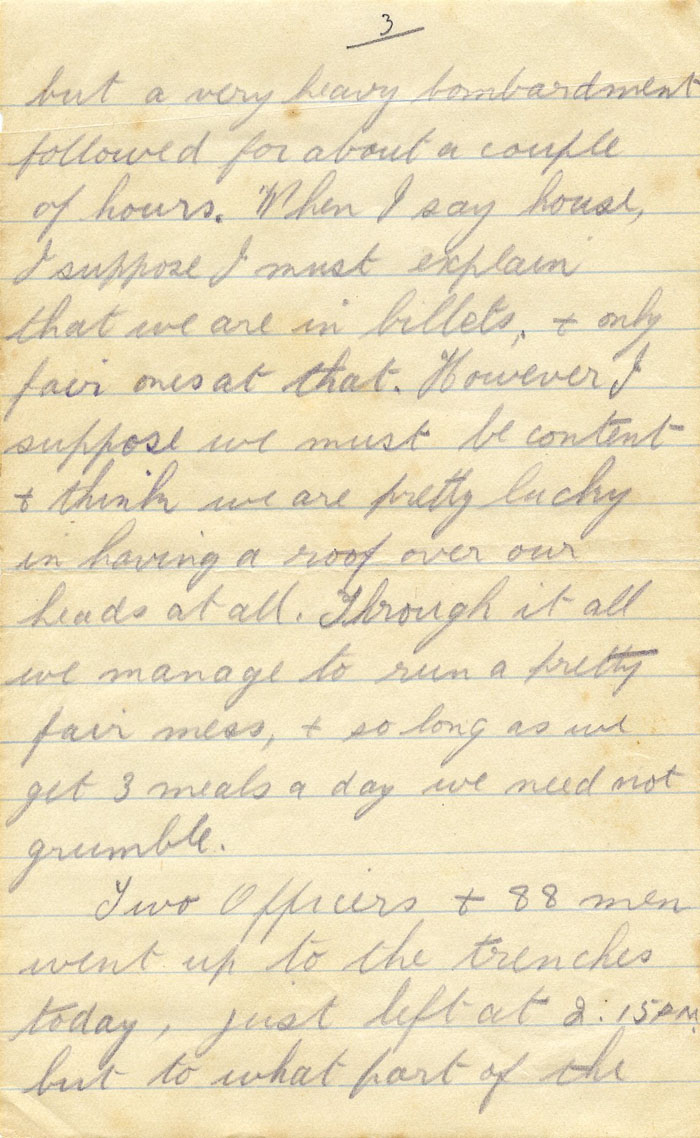 3
but a very heavy bombardment
followed for about a couple
of hours. When I say house,
I suppose I must explain
that we are in billets, + only
fair ones at that. However I
suppose we must be content
+ think we are pretty lucky
in having a roof over our
heads at all. Through it all
we manage to run a pretty
fair mess, + so long as we
get 3 meals a day we need not
grumble.
Two Officers + 88 men
went up to the trenches
today, just left at 2.15PM.
but to what part of the